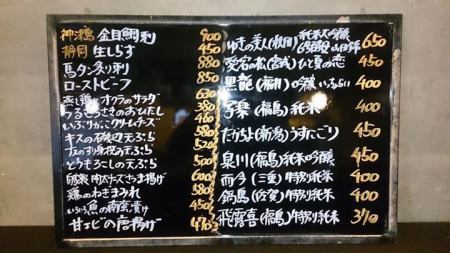 神津島 金目鯛刺 900
静岡 生しらす 450
馬タン炙り刺 880
ローストビーフ 850
蒸し鶏とオクラのサラダ 630
380
いぶりがっこクリームチーズ 460
キスの天ぷら 580
天ぷら 520
とうもろこしの天ぷら 500
さつま揚げ 600
鶏のねぎまみれ 580
魚の南蛮漬け 450
甘エビの唐揚げ 470
ゆきの美人(秋田)純米大吟醸 650
愛宕の松(宮城)ひと夏の恋 450
黒龍(福井)吟醸いっちょらい 400
写楽(福島)純米 400
たかちよ(新潟)うすにごり 450
泉川(福島)純米吟醸 450
而今(三重)特別純米 400
鍋島(佐賀)特別純米 400
飛露喜(福島)特別純米 370